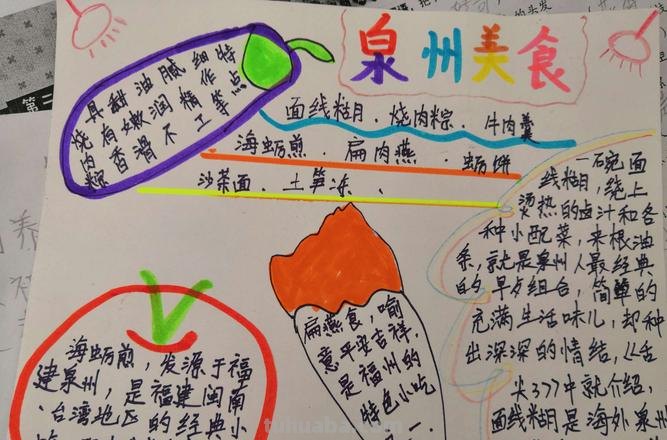 泉州美食
具甜油腻细特
烧有嫩润精作点
肉香滑不工等
粽
面线糊、烧肉粽、牛肉羹
海蛎煎、扁肉燕、蛎饼
沙茶面、土笋冻、
一碗面
线糊,绕上
烫热的卤汁和各
种小配菜,来根油
条,就是泉州人最经典
的早夕组合,简单的
充满生活味儿,却种
出深深的情结,《舌
尖3》中就介绍,
面线糊是海外泉州
扁燕食,喻
意平安吉祥,
是福州的
特色小吃
海蛎煎,发源于福
建泉州,是福建闽南
、台湾地区的经典小
tuhuabao.com
第二